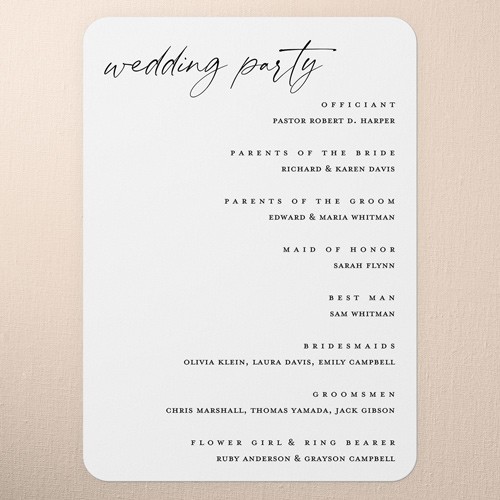 wedding party
OFFICIANT
PASTOR ROBERT D. HARPER
PARENTS OF THE BRIDE
RICHARD & KAREN DAVIS
PARENTS OF THE GROOM
EDWARD & MARIA WHITMAN
MAID OF HONOR
SARAH FLYNN
BEST MAN
SAM WHITMAN
BRIDESMAIDS
OLIVIA KLEIN, LAURA DAVIS, EMILY CAMPBELL
GROOMSMEN
CHRIS MARSHALL, THOMAS YAMADA, JACK GIBSON
FLOWER GIRL & RING BEARER
RUBY ANDERSON & GRAYSON CAMPBELL